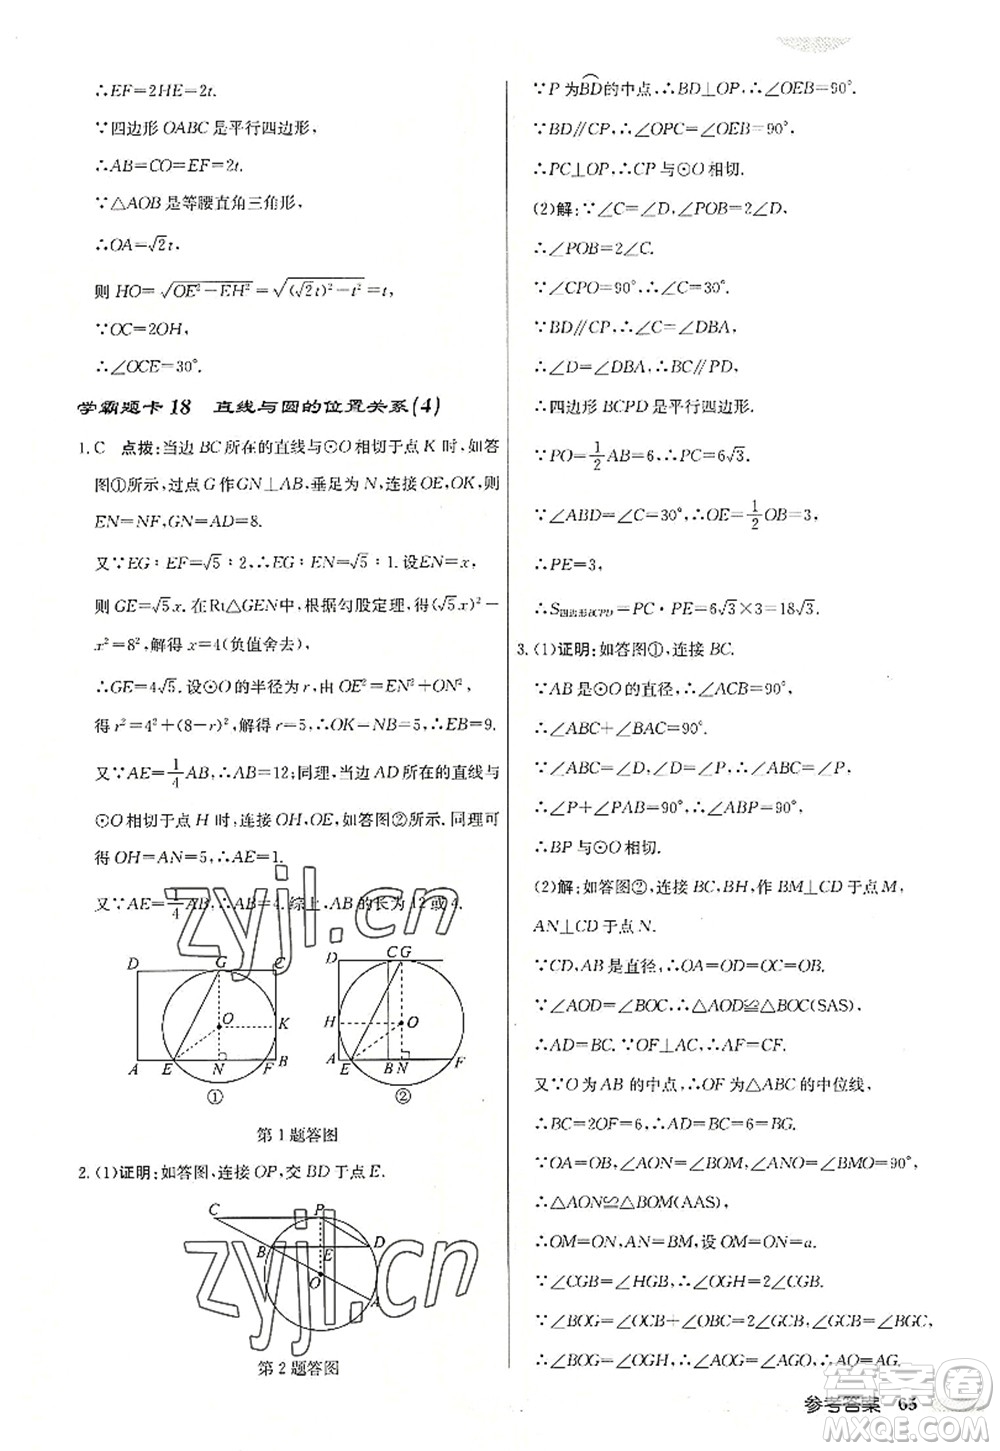 ∴EF=2HE=2t.
∵四边形 OABC 是平行四边形,
∴AB=CO=EF=2t.
∵△AOB 是等腰直角三角形,
∴OA=√2t,
则 HO=√(OE²-EH²)=√((√2t)²-t²)=t,
∵OC=2OH,
∴∠OCE=30°.
学霸题卡 18 直线与圆的位置关系(4)
1. C 点拨:当边 BC 所在的直线与⊙O 相切于点 K 时,如答
图①所示,过点 G 作 GN⊥AB,垂足为 N,连接 OE,OK,则
EN=NF,GN=AD=8.
又∵EG∶EF=√5∶2,∴EG∶EN=√5∶1. 设 EN=x,
则 GE=√5x. 在 Rt△GEN 中,根据勾股定理,得(√5x)²-
x²=8²,解得 x=4(负值舍去),
∴GE=4√5. 设⊙O 的半径为 r,由 OE²=EN²+ON²,
得 r²=4²+(8-r)²,解得 r=5,∴OK=NB=5,∴EB=9.
又∵AE=1/4AB,∴AB=12;同理,当边 AD 所在的直线与
⊙O 相切于点 H 时,连接 OH,OE,如答图②所示. 同理可
得 OH=AN=5,∴AE=1.
又∵AE=1/4AB,∴AB=4. 综上,AB 的长为 12 或 4.
D G C
O K
A E N F B
①
C G
D
H O
A E B N F
②
第 1 题答图
2. (1)证明:如答图,连接 OP,交 BD 于点 E.
C P
B E D
O
A
第 2 题答图
∵P 为BD的中点,∴BD⊥OP,∴∠OEB=90°.
∵BD∥CP,∴∠OPC=∠OEB=90°,
∴PC⊥OP,∴CP 与⊙O 相切.
(2)解:∵∠C=∠D,∠POB=2∠D,
∴∠POB=2∠C.
∵∠CPO=90°,∴∠C=30°.
∵BD∥CP,∴∠C=∠DBA,
∴∠D=∠DBA,∴BC∥PD,
∴四边形 BCPD 是平行四边形.
∵PO=1/2AB=6,∴PC=6√3.
∵∠ABD=∠C=30°,∴OE=1/2OB=3,
∴PE=3,
∴S四边形BCPD=PC·PE=6√3×3=18√3.
3. (1)证明:如答图①,连接 BC.
∵AB 是⊙O 的直径,∴∠ACB=90°,
∴∠ABC+∠BAC=90°.
又∵∠ADC=∠ABC,∠ADC=∠P,∴∠ABC=∠P,
∴∠P+∠PAB=90°,∴∠ABP=90°,
∴BP 与⊙O 相切.
(2)解:如答图②,连接 BC,BH,作 BM⊥CD 于点 M,
AN⊥CD 于点 N.
∵CD,AB 是直径,∴OA=OD=OC=OB.
∵∠AOD=∠BOC,∴△AOD≌△BOC(SAS),
∴AD=BC. ∵OF⊥AC,∴AF=CF.
又∵O 为 AB 的中点,∴OF 为△ABC 的中位线,
∴BC=2OF=6,∴AD=BC=BH=BG.
∵OA=OB,∠AON=∠BOM,∠ANO=∠BMO=90°,
∴△AON≌△BOM(AAS),
∴OM=ON,AN=BM,设 OM=ON=a.
∵∠CGB=∠HGB,∴∠OGH=2∠CGB.
∵∠BOG=∠OCB+∠OBC=2∠OCB,∠GCB=∠CGB,
∴∠BOG=∠OGH,∴∠AOG=∠AGO,∴AO=AG.
参考答案 65
zyjl.cn
zyjl.cn
答案圈
MXQE.COM